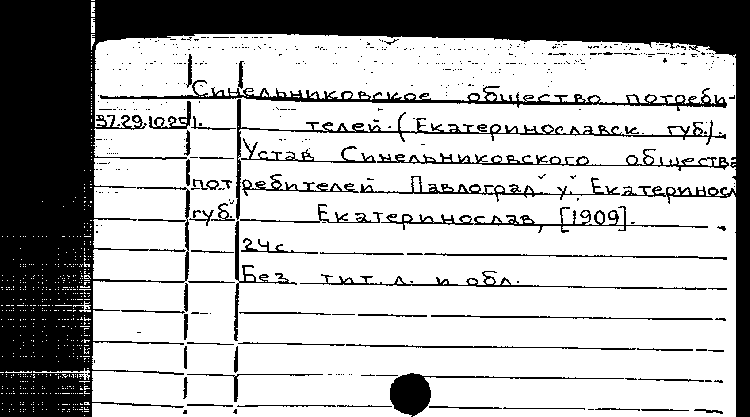 Синельниковское общество потреби-
37.29.10.251. телей. (Екатеринославск. губ.).
Устав Синельниковского общества
потребителей Павлоград. у. Екатериносл
губ. Екатеринослав, [1909].
24с.
Без тит. л. и обл.